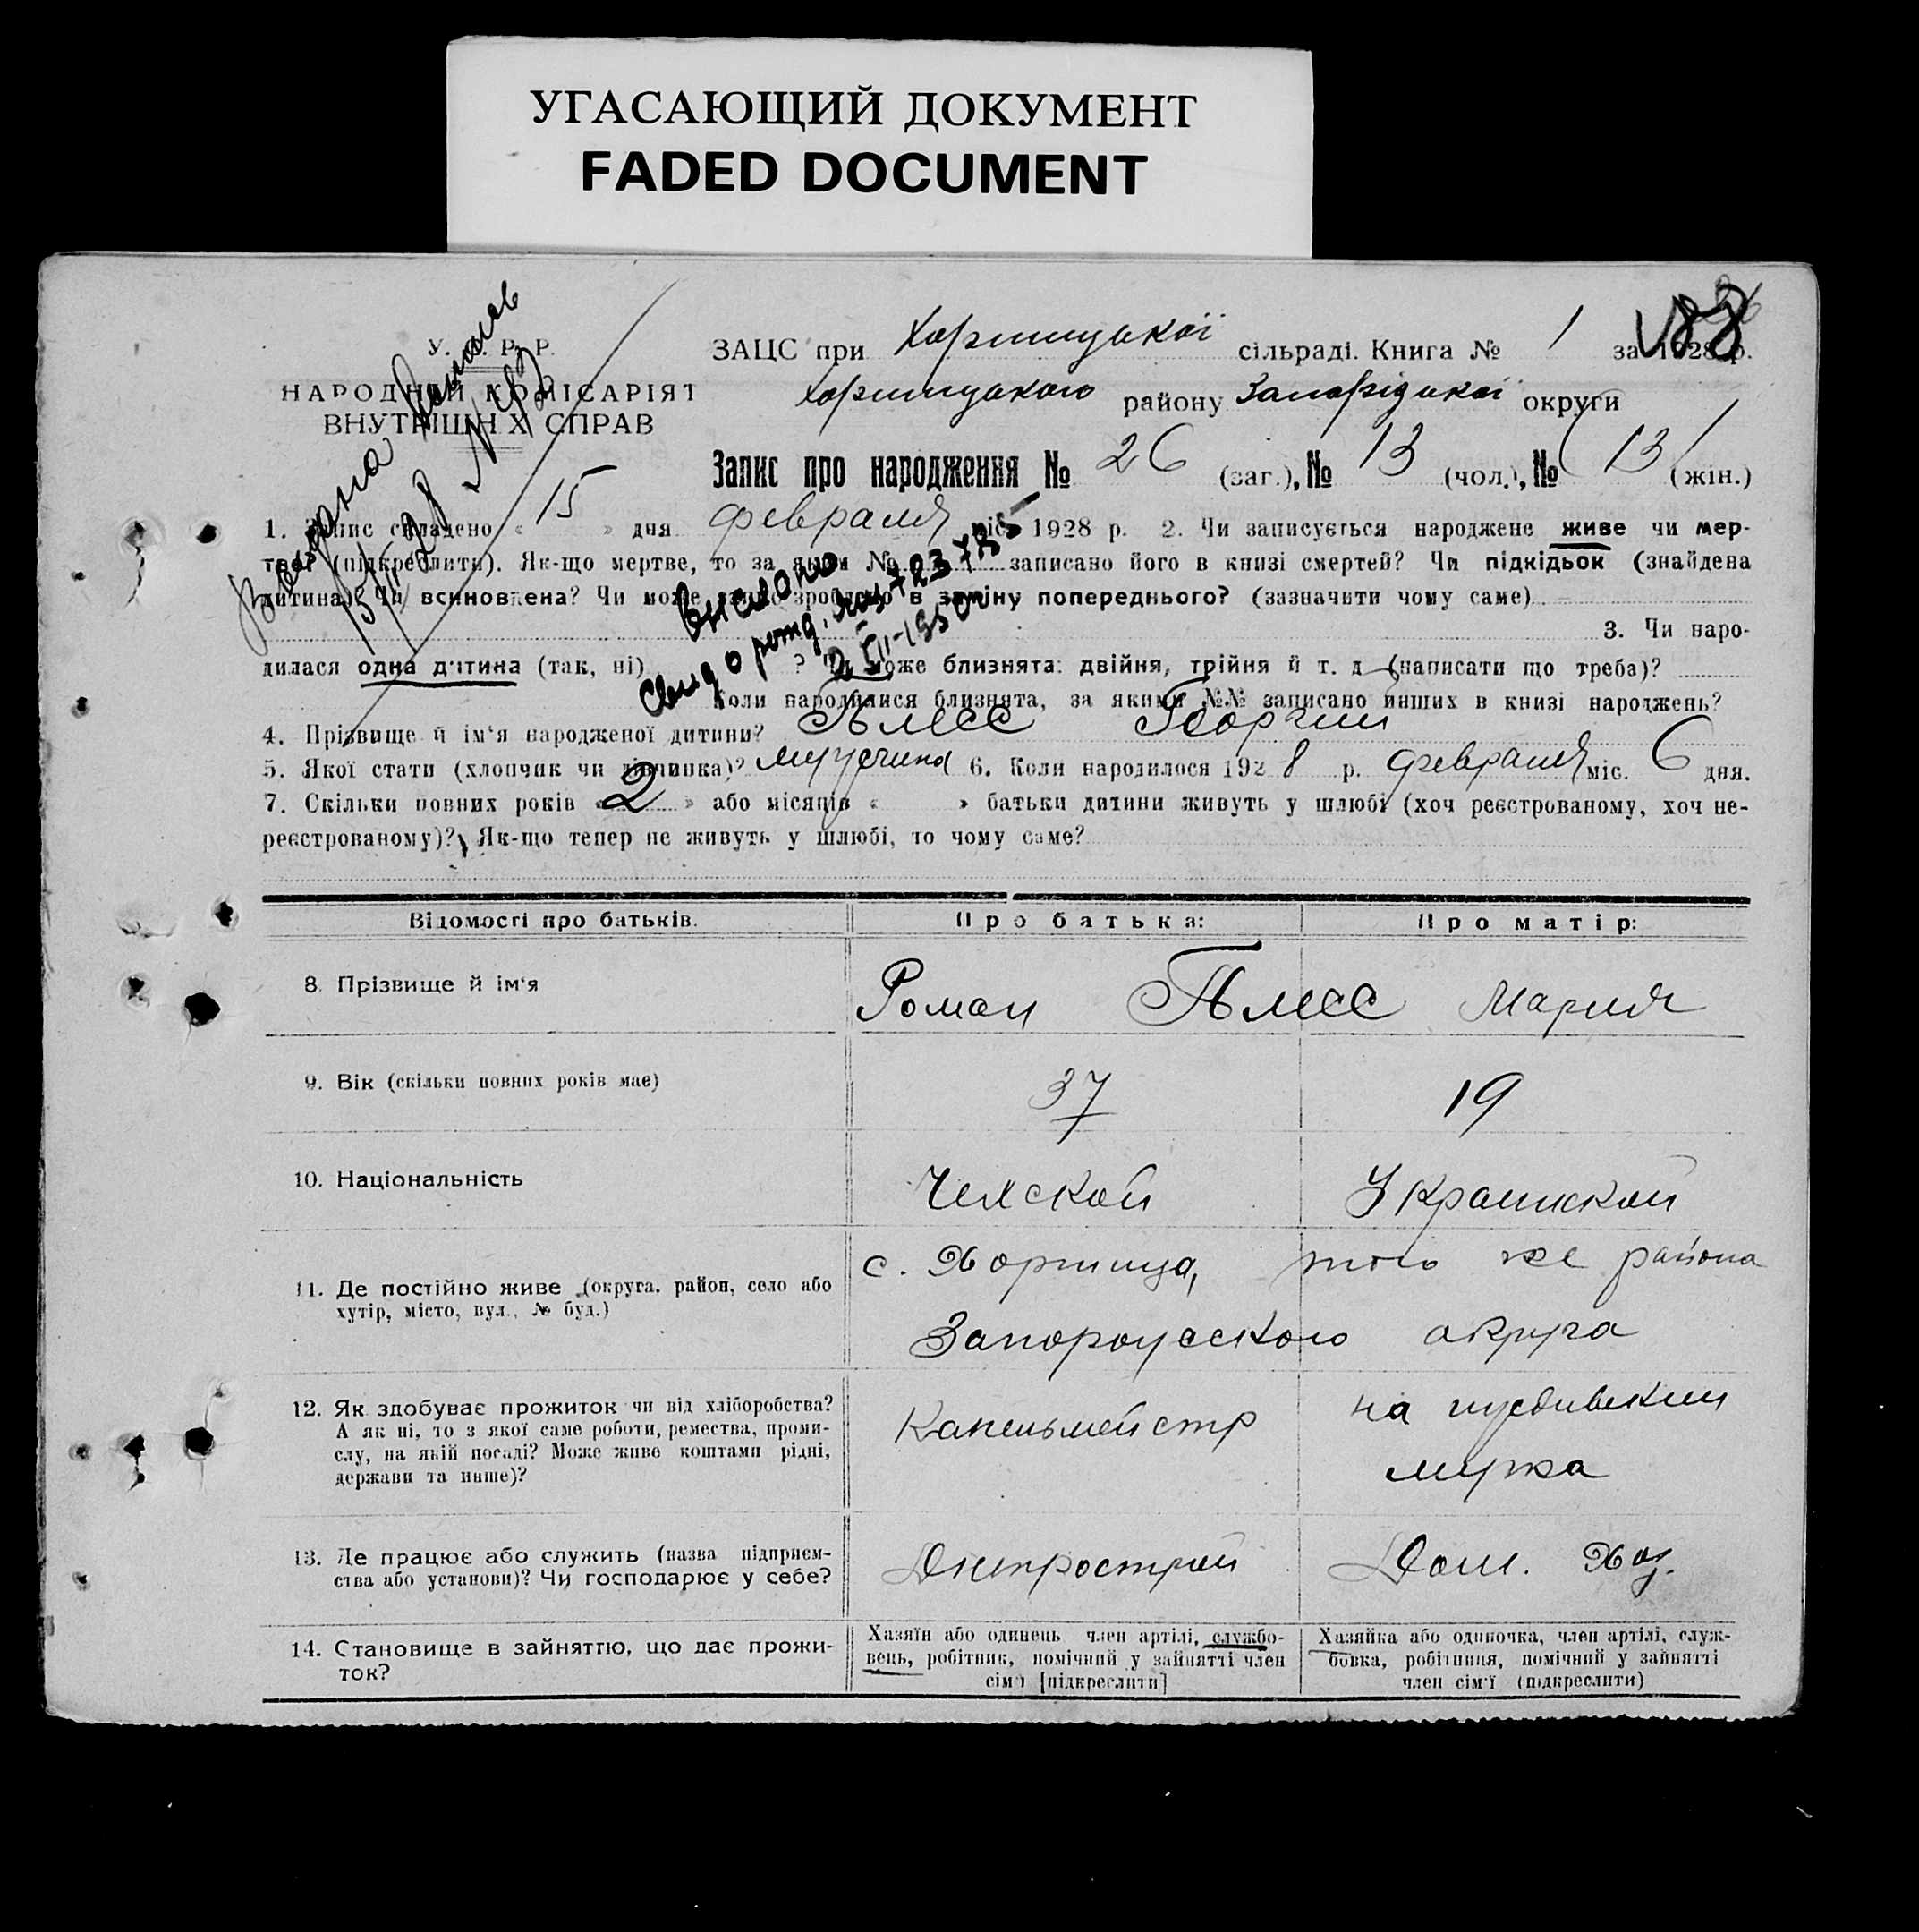 УГАСАЮЩИЙ ДОКУМЕНТ
FADED DOCUMENT
У. Р. Р.
НАРОДНИЙ КОМІСАРІЯТ
ВНУТРІШНІХ СПРАВ
ЗАЦС при Хортицької сільраді. Книга № 1 за 1928 р.
Хортицького району Запорізької округи
Запис про народження № 26 (заг.), № 13 (чол.), № 13 (жін.)
1. Запис складено « 15 » дня февраля міс. 1928 р. 2. Чи записується народжене живе чи мер-
тве? (підкреслити). Як-що мертве, то за яким № записано його в книзі смертей? Чи підкідьок (знайдена
дитина)? Чи всиновлена? Чи може запис зроблено в заміну попереднього? (зазначити чому саме)
3. Чи наро-
дилася одна дитина (так, ні) ? Чи може близнята: двійня, трійня й т. д. (написати що треба)?
Коли народилися близнята, за якими №№ записано инших в книзі народжень?
Выслано
Свид о рожд.
4. Прізвище й ім'я народженої дитини? Плесс Георгий
5. Якої стати (хлопчик чи дівчинка)? мужчина 6. Коли народилося 1928 р. февраля міс. 6 дня.
7. Скільки повних років « 2 » або місяців « » батьки дитини живуть у шлюбі (хоч реєстрованому, хоч не-
реєстрованому)? Як-що тепер не живуть у шлюбі, то чому саме?
Відомості про батьків. Про батька: Про матір:
8. Прізвище й ім'я Роман Плесс Мария
9. Вік (скільки повних років має) 37 19
10. Національність Чехской Украинской
11. Де постійно живе (округа, район, село або
хутір, місто, вул., № буд.)
с. Хортица, того же района
Запорожского округа
12. Як здобуває прожиток чи від хліборобства?
А як ні, то з якої саме роботи, ремества, проми-
слу, на якій посаді? Може живе коштами рідні,
держави та инше)?
Капельмейстр на иждивении
мужа
13. Де працює або служить (назва підприєм-
ства або установи)? Чи господарює у себе?
Днепрострой Дом. Хоз.
14. Становище в зайняттю, що дає прожи-
ток?
Хазяїн або одинець член артілі, службо-
вець, робітник, помічний у зайнятті член
сім'ї [підкреслити]
Хазяйка або одиночка, член артілі, служ-
бовка, робітниця, помічний у зайнятті
член сім'ї (підкреслити)